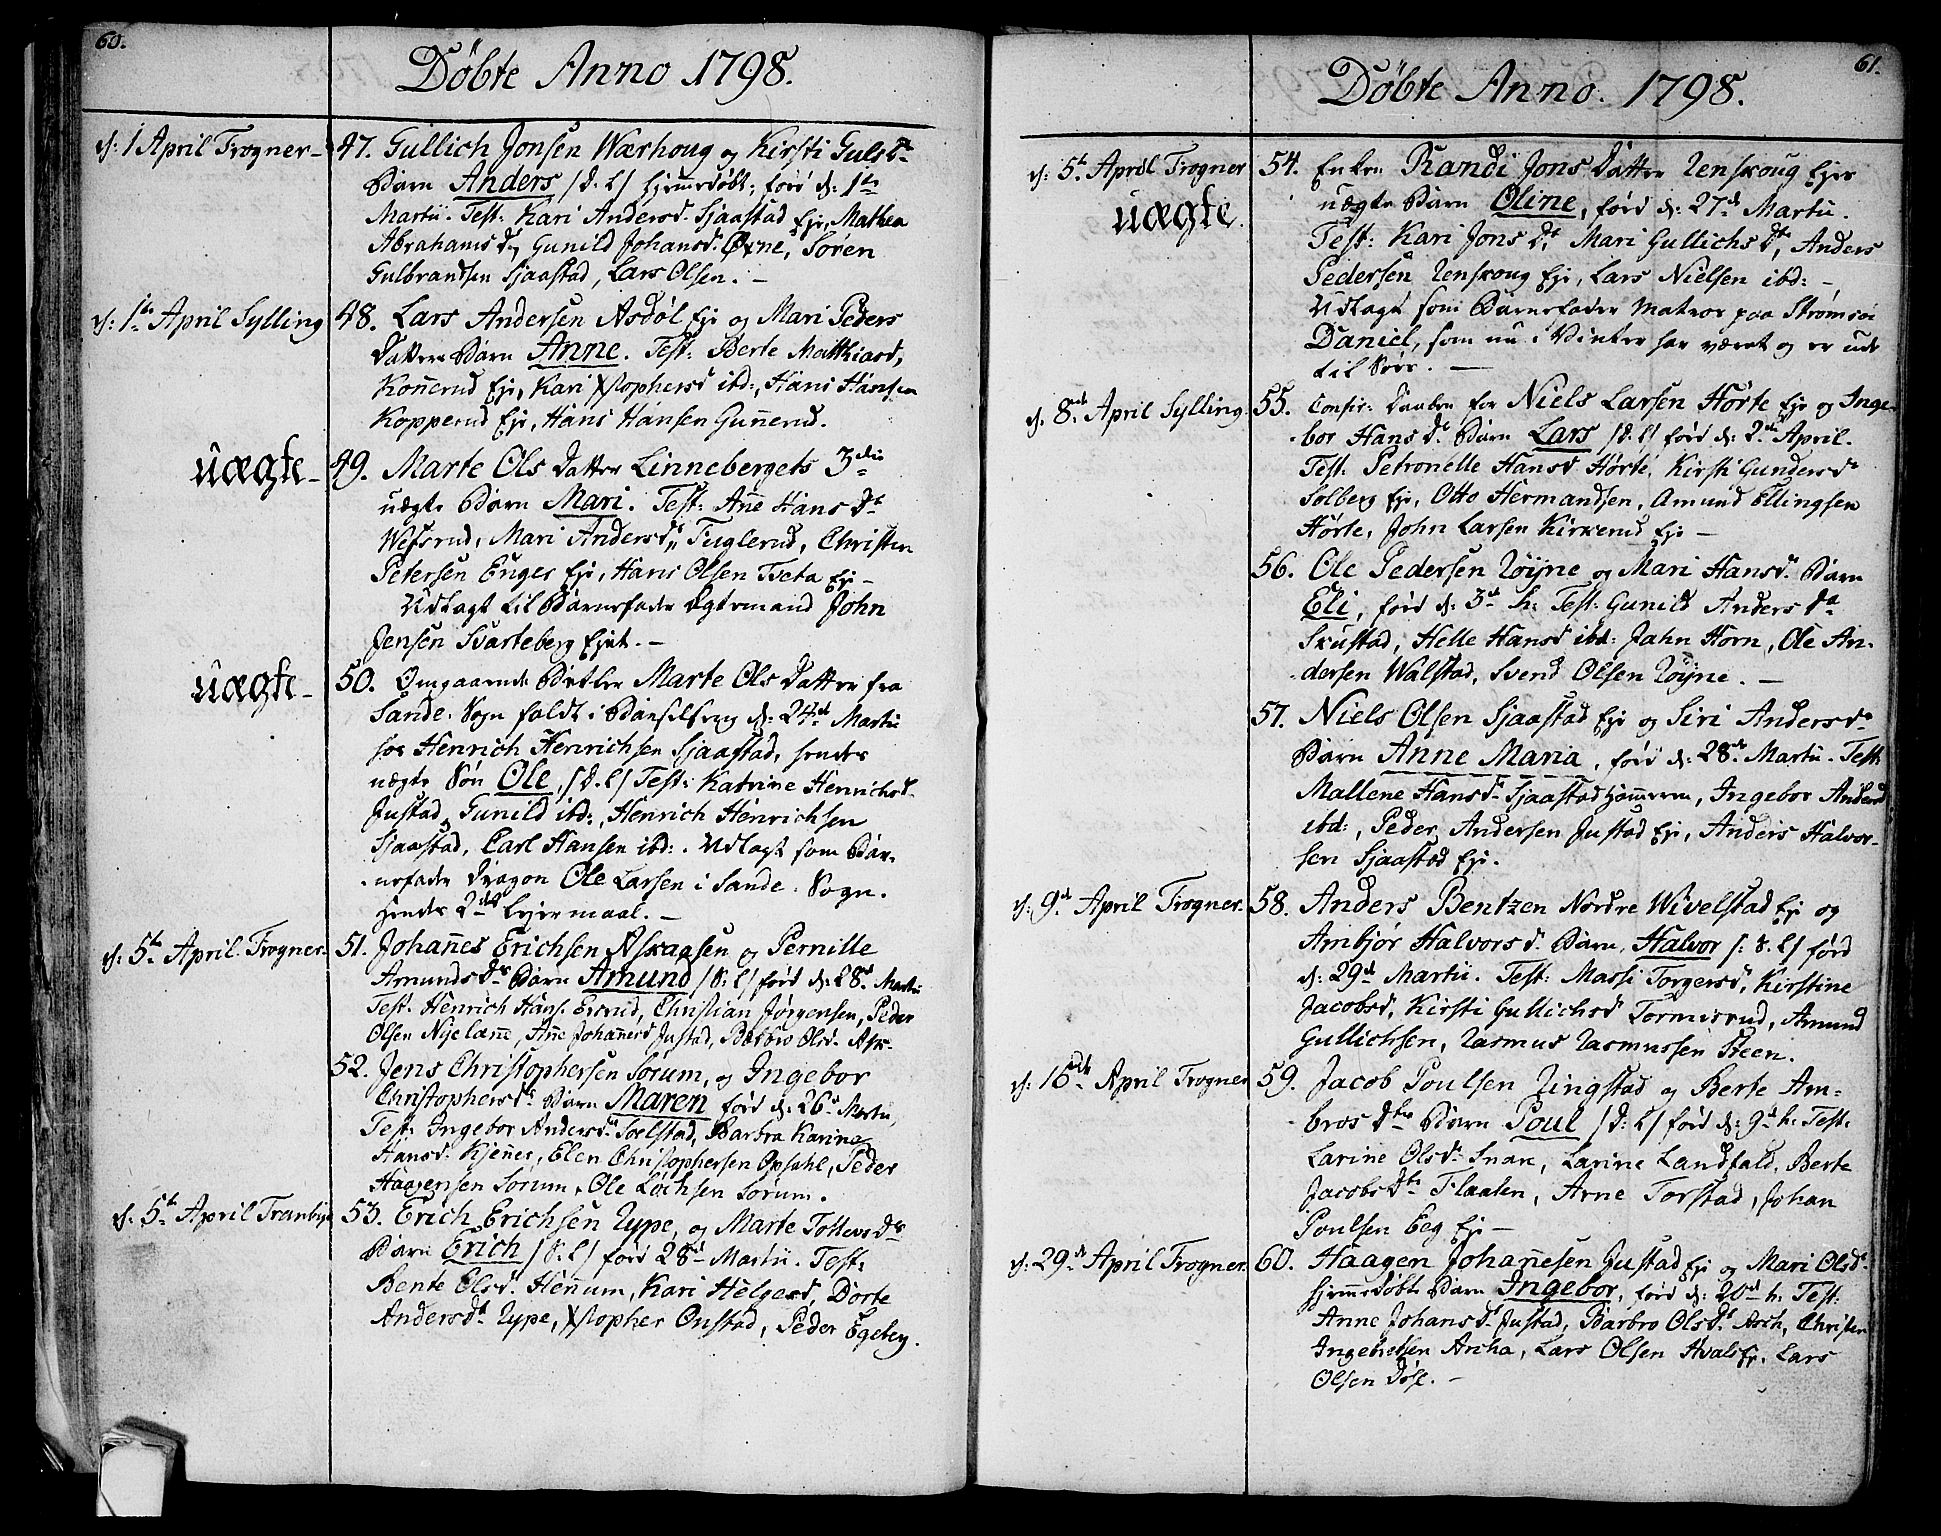 60.
Döbte Anno 1798.
d: 1 April Trogner
47. Gullich Jonsen Wærhoug og Kirsti Gulsd.
Barn Anders /d. L/ hjemmedöbt, född d: 1te
Martii. Test: Kari Andersd. Sjaastad Eje, Mathea
Abrahamsd, Gunild Johansd. Øxne, Sören
Gulbrandsen Sjaastad, Lars Olsen. –
d: 1te April Sylling
48. Lars Andersen Asdöl Eje og Mari Peders
Datters Barn Anne. Test: Berte Matthiasd,
Konnerud Eje, Kari Xstophersd ibd:, Hans Hansen
Kopperud Eje, Hans Hansen Gunnerud.
uægte –
49. Marte Ols Datter Linnebergets 3die
uægte Barn Mari. Test: Anne Hans Dr
Wefsrud, Mari Andersdr Fuglerud, Christen
Petersen Enger Eje, Hans Olsen Tveta Eje –
Udlagt til Barnefader Egtemand John
Jensen Svarteberg Ejet. –
uægte –
50. Omgaaende Betler Marte Ols Datter fra
Sande Sogn faldt i Barselseng d: 24de Martii
hos Henrich Henrichsen Sjaastad, hendes
uægte Sön Ole, /d. L/ Test: Katrine Henrichsd.
Justad, Gunild ibd:, Henrich Henrichsen
Sjaastad, Carl Hansen ibd:. Udlagt som Bar-
nefader Dragon Ole Larsen i Sande Sogn.
Hendes 2det Lejermaal. –
d: 5te April Trogner.
51. Johannes Erichsen Askaasen og Pernille
Amundsdr Barn Amund /d: L/ född d: 28de Martii
Test. Henrich Hans. Ersrud, Christian Jörgensen, Peder
Olsen Nyelænne, Anne Johannesd Justad, Barbro Olsd. Ask-
52. Jens Christophersen Sorum, og Ingebor
Christophersdr Barn Maren född d: 26de Martii,
Test: Ingebor Andersdr Toelstad, Barbra Karine
Hansd. Kjenner, Elen Christophersen Opsahl, Peder
Haagensen Sorum, Ole Löchsen Sorum.
d: 5te April Tranbye
53. Erich Erichsen Rype, og Marte Tollevsdr
Barn Erich /d: L/ född 28de Martii. Test:
Bente Olsd. Hennum, Kari Helgesd, Dorte
Andersdr Rype, Xstopher Onstad, Peder Egeberg.
61.
Döbte Anno. 1798.
d: 5te April Trogner
uægte.
54. Enken Randi Jons Datter Renskoug Ejes
uægte Barn Oline, född d: 27de Martii.
Test: Kari Jons Dr, Mari Gullichs Dr, Anders
Pedersen Renskoug Eje, Lars Nielsen ibd: –
Udlagt som Barnefader Matros paa Strömsöe
Daniel, som nu i Vinter har været og er ude
til Söes. –
d: 8de April Sylling
55. Confir: Daaben for Niels Larsen Hörte Eje og Inge-
bor Hansdr Barn Lars /d. L/ född d: 2den April.
Test: Petronelle Hansd Hörte, Kirsti Gundersdr
Solberg Eje, Otto Hermandsen, Amund Ellingsen
Hörte, John Larsen Kirkerud Eje –
56. Ole Pedersen Röyne og Mari Hansdr Barn
Eli, född d: 3de h. Test: Gunild Andersdr
Skustad, Helle Hansd ibd: Jahn Horn, Ole An-
dersen Walstad, Svend Olsen Röyne. –
57. Niels Olsen Sjaastad Eje og Siri Andersdr
Barn Anne Maria, född d: 28de Martii. Test:
Mallene Hansdr Sjaastad Hammeren, Ingebor Andersd
ibd:, Peder Andersen Justad Eje, Anders Halvor-
sen Sjaastad Eje.
d: 9de April Trogner.
58. Anders Bentzen Nordre Wivelstad Eje og
Ambjör Halvorsdr Barn Halvor /: d. L/ född
d: 29de Martii. Test: Massi Torgersd, Kirstine
Jacobsd, Kirsti Gullichsd Tormisrud, Amund
Gullichsen, Rasmus Rasmussen Steen.
d: 16de April Trogner
59. Jacob Poulsen Ringstad og Berte Am-
brosdtr Barn Poul /d: L/ född d: 9de h. Test:
Larine Olsdr Snar, Larine Landfald, Berte
Jacobsdtr Flaalen, Arne Torstad, Johan
Poulsen Eeg Eje –
d: 29de April Trogner.
60. Haagen Johannesen Justad Eje og Mari Olsdr
hjemmedöbt Barn Ingebor, född d: 20de h. Test:
Anne Johansdr Justad, Barbro Olsdr Asch, Christen
Ingebretsen Archa, Lars Olsen Hvals Eje. Lars
Olsen Döse. –